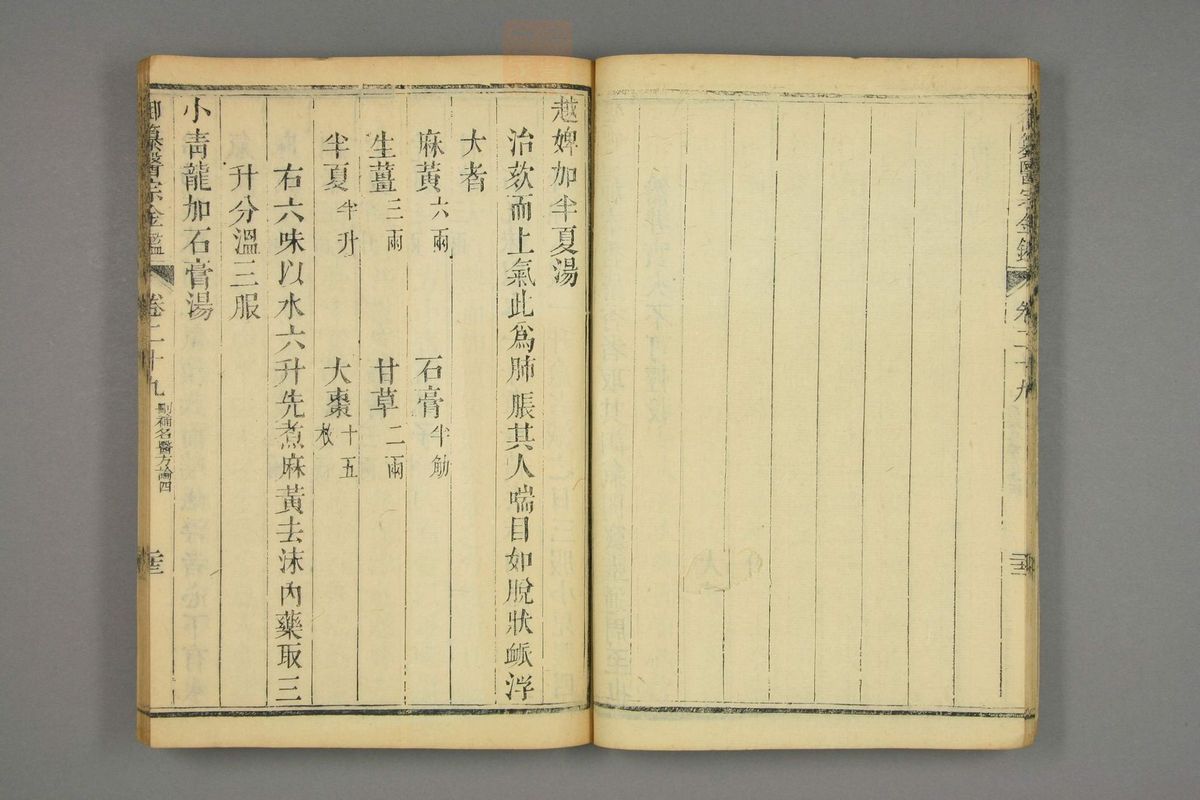 越婢加半夏湯
治欬而上氣此爲肺脹其人喘目如脫狀脈浮
大者
麻黃六兩 石膏半觔
生薑三兩 甘草二兩
半夏半升 大棗十五枚
右六味以水六升先煮麻黃去沫內藥取三
升分溫三服
小靑龍加石膏湯
御纂醫宗金鑑 卷二十九 刪補名醫方論四
御纂醫宗金鑑 卷二十九